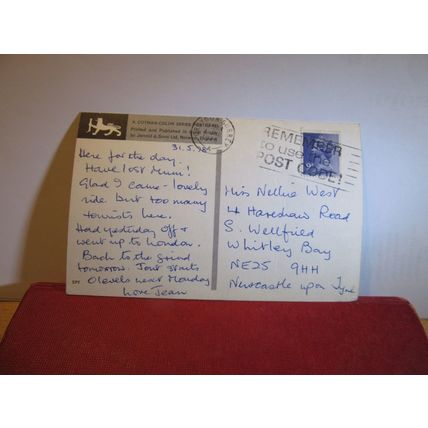 A COTMAN-COLOR SERIES POSTCARD
Printed and Published in Great Britain
by Jarrold & Sons Ltd, Norwich, England
REMEMBER
to use the
POST CODE!
31.5.78
Here for the day.
Have lost Mum!
Glad I came - lovely
ride but too many
tourists here.
Had yesterday off &
went up to London.
Back to the grind
tomorrow. Joan starts
O levels next Monday
love Jean
Miss Nellie West
4 Hareshaw Road
S. Wellfried
Whitley Bay
NE25 9HH
Newcastle upon Tyne